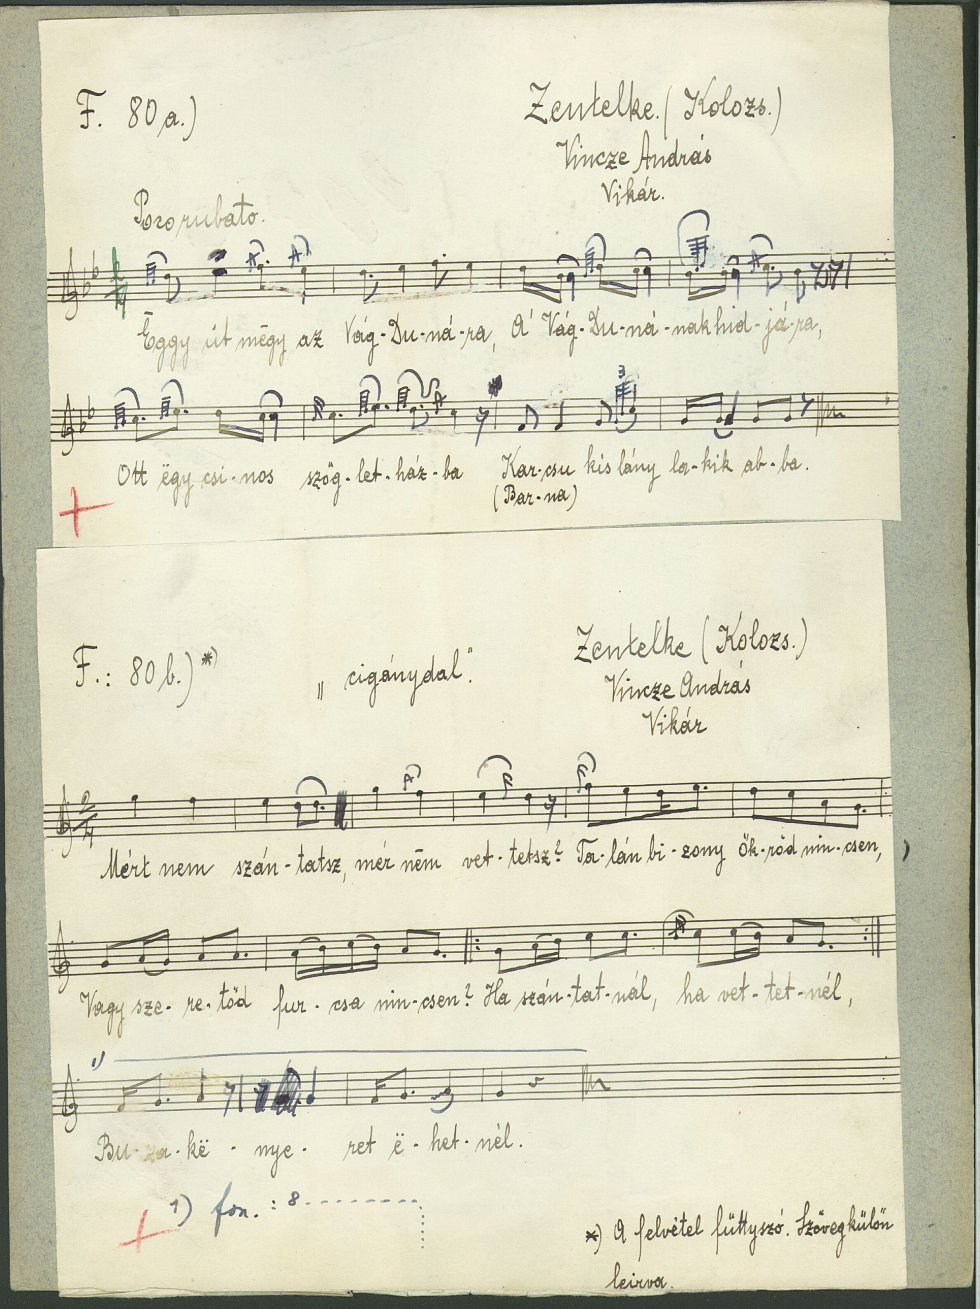 F. 80 a.)
Zentelke. (Kolozs.)
Vincze András
Vikár.
Poco rubato.
Ëggy út mëgy az Vág-Du-ná-ra, A' Vág-Du-ná-nak hid-já-ra,
Ott ëgy csi-nos szög-let-ház-ba Kar-csu kis lány la-kik ab-ba.
(Bar-na)
F.: 80 b.) *)
„cigánydal".
Zentelke (Kolozs.)
Vincze András
Vikár
2/4
Mért nem szán-tatsz, mér nëm vet-tetsz? Ta-lán bi-zony ök-röd nin-csen,
Vagy sze-re-töd fur-csa nin-csen? Ha szán-tat-nál, ha vet-tet-nél,
1)
Bu-za-kë-nye-ret ë-het-nél.
1) fon.: 8
*) A felvétel füttyszó. Szöveg külön
leirva.